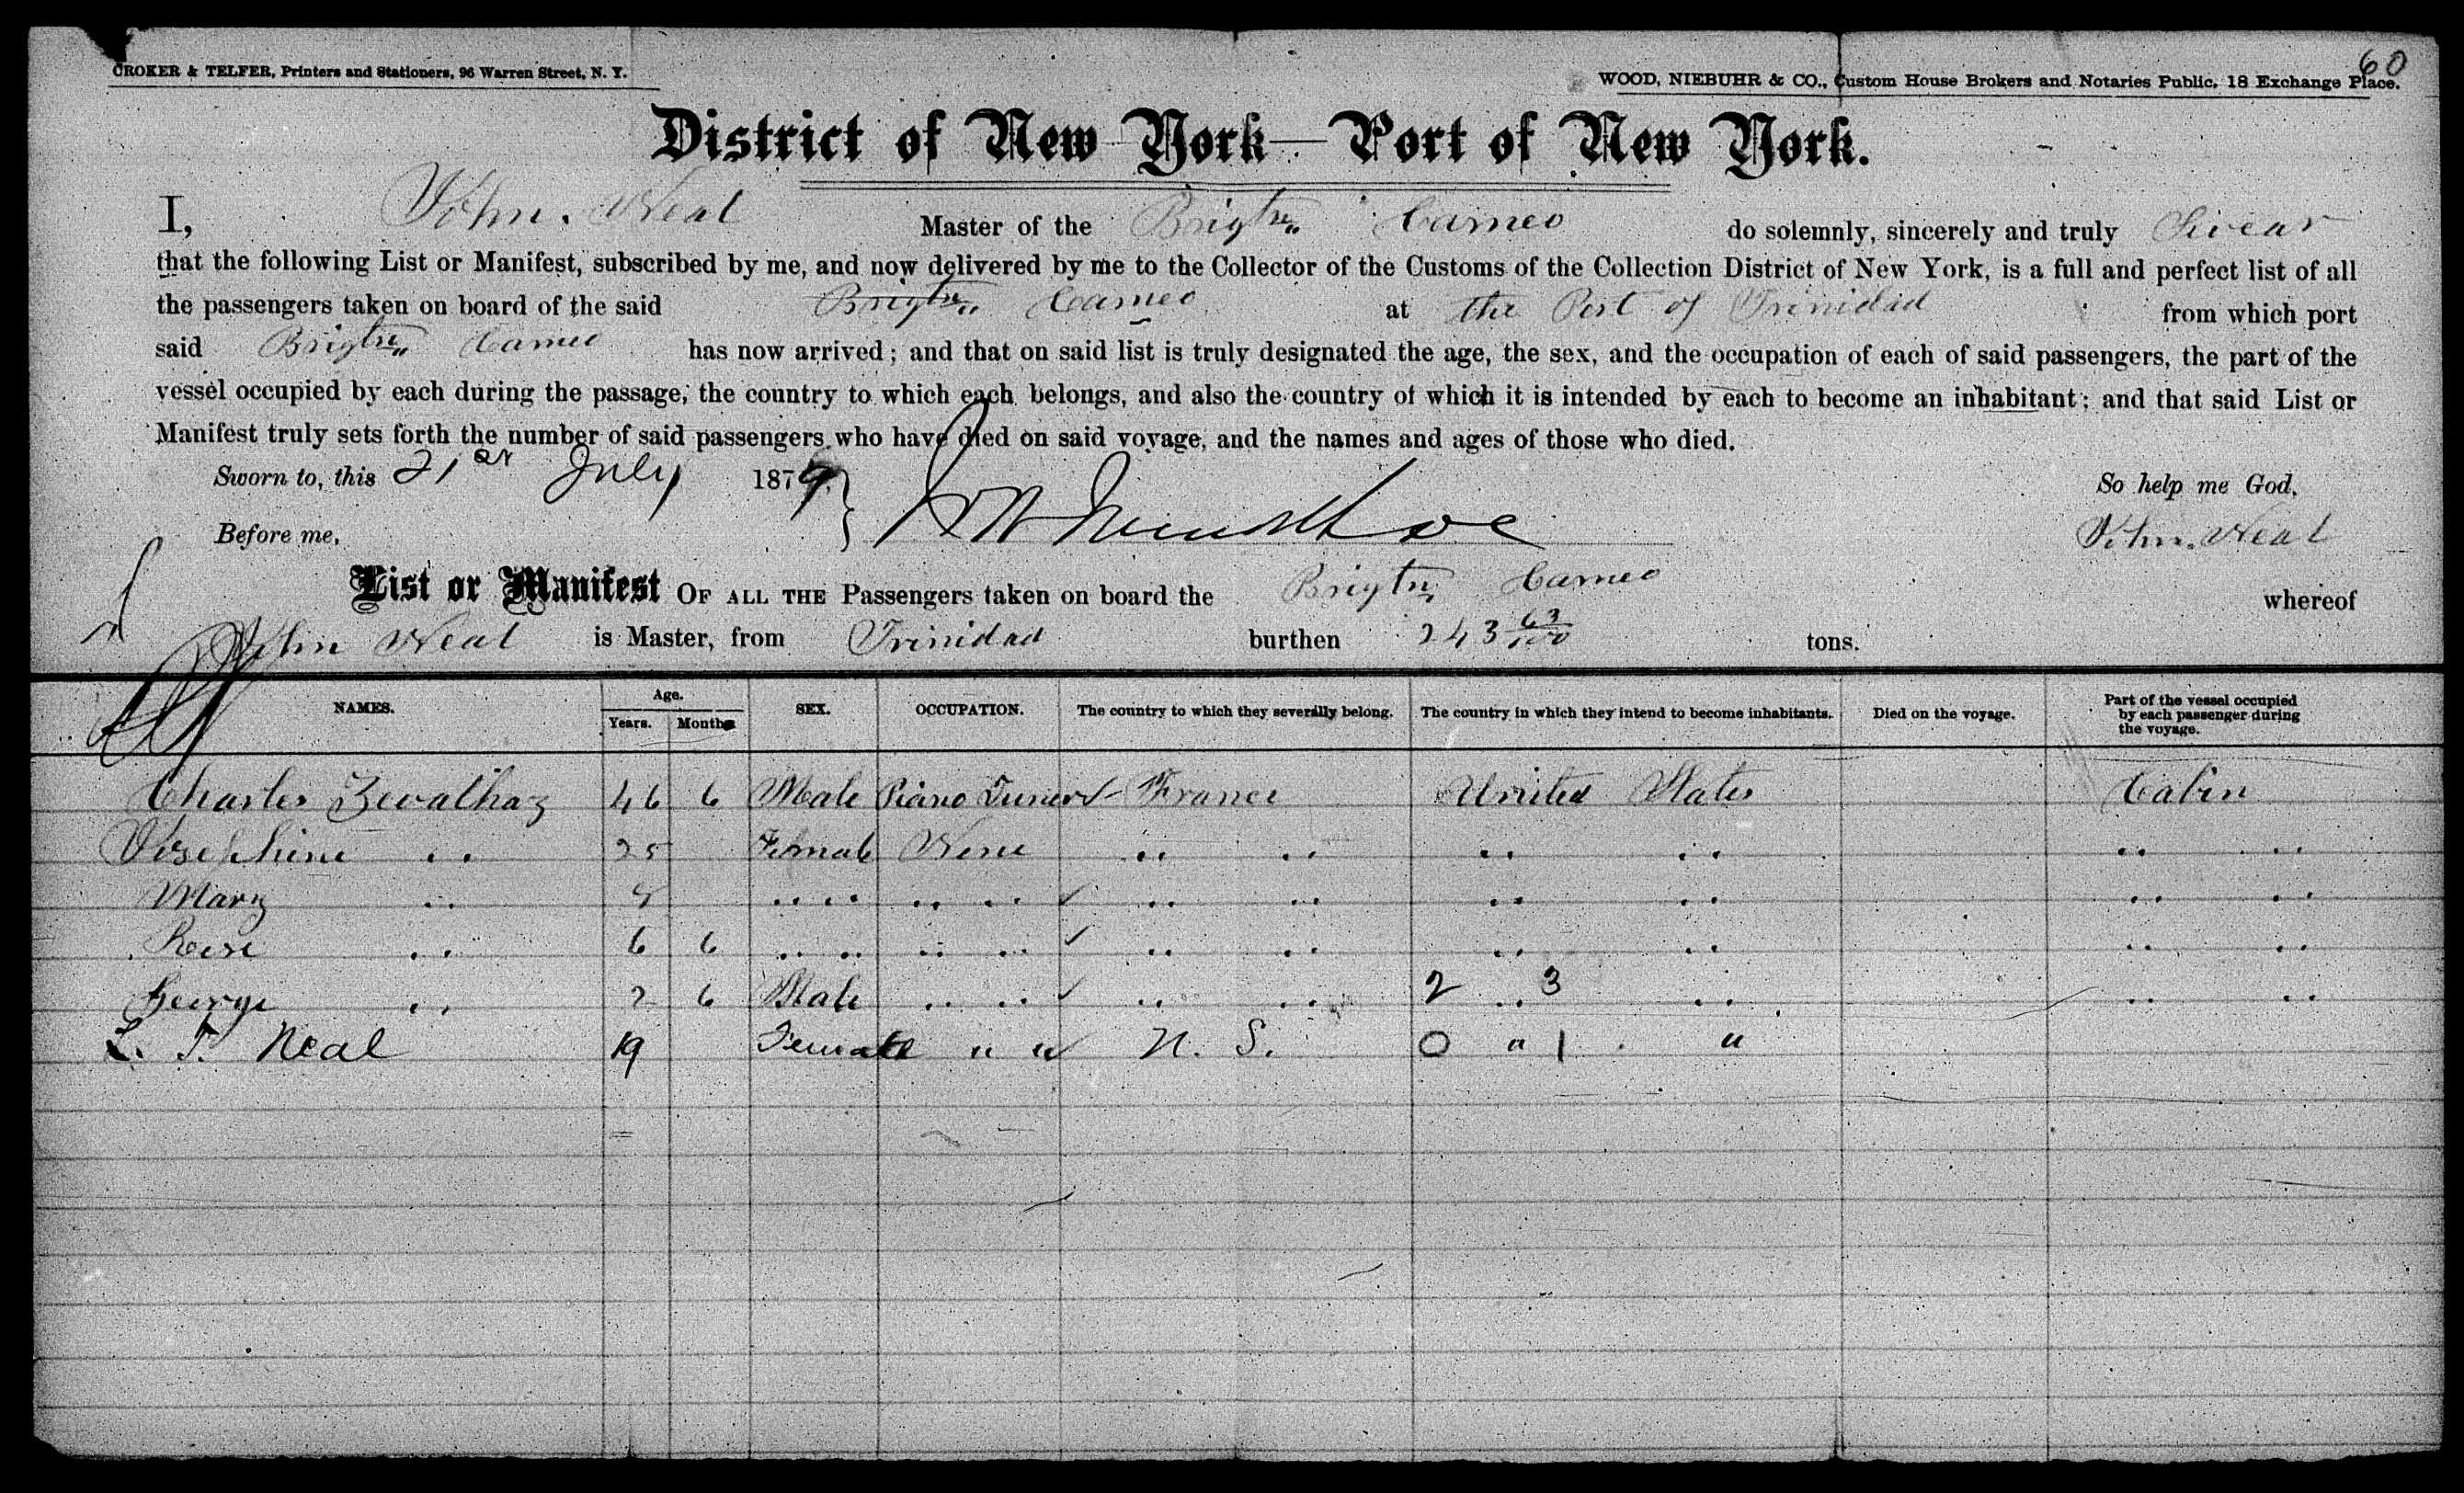 60
CROKER & TELFER, Printers and Stationers, 96 Warren Street, N. Y.
WOOD, NIEBUHR & CO., Custom House Brokers and Notaries Public. 18 Exchange Place.
District of New York—Port of New York.
I, John. Neal Master of the Brigtn Cameo do solemnly, sincerely and truly Swear
that the following List or Manifest, subscribed by me, and now delivered by me to the Collector of the Customs of the Collection District of New York, is a full and perfect list of all
the passengers taken on board of the said Brigtn Cameo at the Port of Trinidad from which port
said Brigtn Cameo has now arrived; and that on said list is truly designated the age, the sex, and the occupation of each of said passengers, the part of the
vessel occupied by each during the passage, the country to which each belongs, and also the country of which it is intended by each to become an inhabitant; and that said List or
Manifest truly sets forth the number of said passengers who have died on said voyage, and the names and ages of those who died.
Sworn to, this 21st July 1879. So help me God.
Before me, John. Neal
List or Manifest OF ALL THE Passengers taken on board the Brigtn Cameo whereof
John Neal is Master, from Trinidad burthen 243 63/100 tons.
NAMES. Age. Years. Months SEX. OCCUPATION. The country to which they severally belong. The country in which they intend to become inhabitants. Died on the voyage. Part of the vessel occupied by each passenger during the voyage.
Charles 46 6 Male Piano Tuner France United States Cabin
Josephine .. 25 Female None .. .. .. .. .. ..
Mary .. 8 .. .. .. .. .. .. .. .. .. ..
Rose .. 6 6 .. .. .. .. .. .. .. .. .. ..
George .. 2 6 Male .. .. .. .. 2 .. 3 .. .. ..
L. T. Neal 19 Female " " N. S. 0 " 1 "